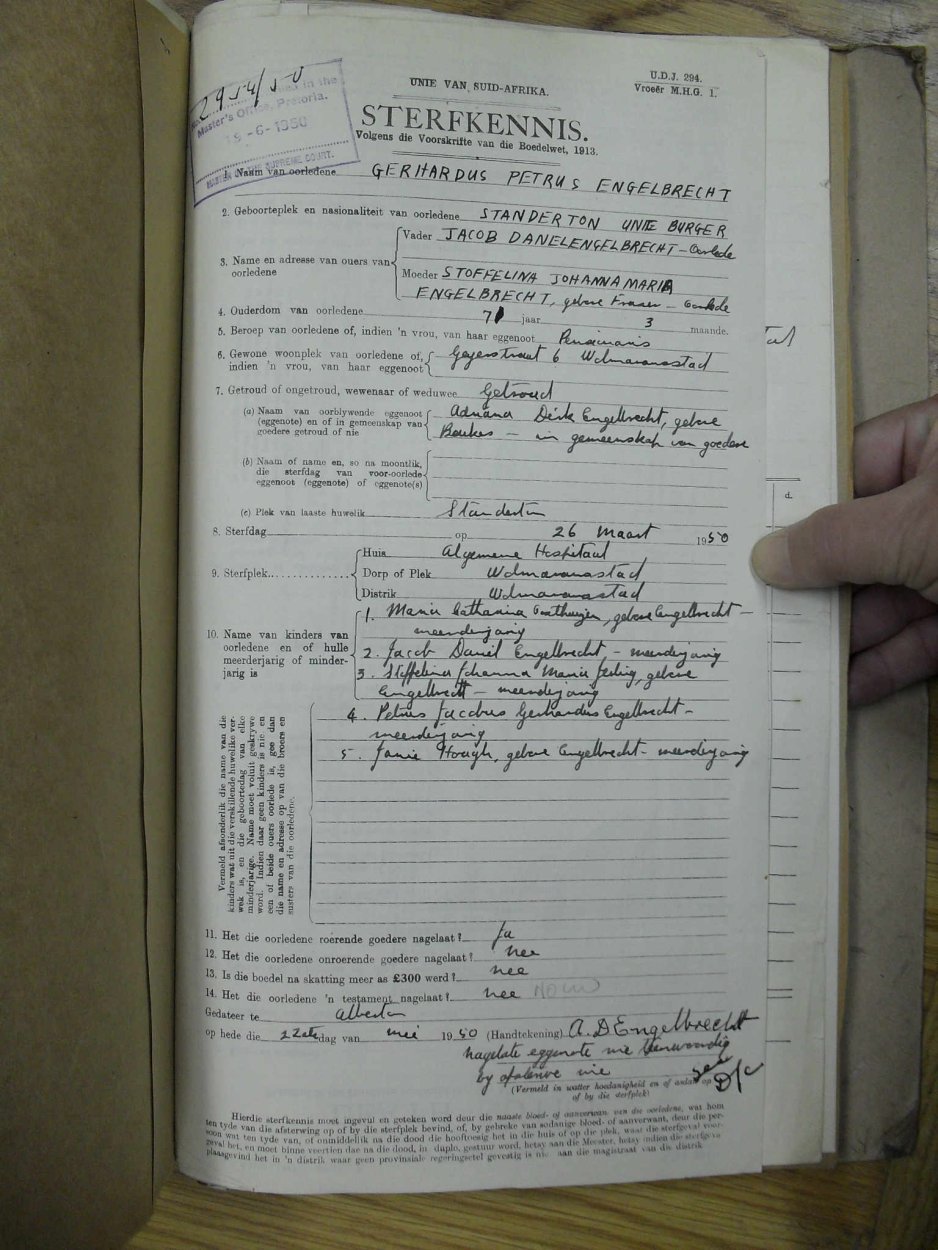 2954/50
Master's Office, Pretoria.
19-6-1950
MASTER OF THE SUPREME COURT.
U.D.J. 294.
Vroeër M.H.G. 1.
UNIE VAN SUID-AFRIKA.
STERFKENNIS.
Volgens die Voorskrifte van die Boedelwet, 1913.
1. Naam van oorledene GERHARDUS PETRUS ENGELBRECHT
2. Geboorteplek en nasionaliteit van oorledene STANDERTON UNIE BURGER
3. Name en adresse van ouers van oorledene
Vader JACOB DANELENGELBRECHT - Oorlede
Moeder STOFFELINA JOHANNA MARIA
ENGELBRECHT, gebore - Oorlede
4. Ouderdom van oorledene 71 jaar 3 maande.
5. Beroep van oorledene of, indien 'n vrou, van haar eggenoot Pensionaris
6. Gewone woonplek van oorledene of, indien 'n vrou, van haar eggenoot Geyerstraat 6 Wolmaransstad
7. Getroud of ongetroud, wewenaar of weduwee Getroud
(a) Naam van oorblywende eggenoot (eggenote) en of in gemeenskap van goedere getroud of nie
Adriana Dirk Engelbrecht, gebore
Beukes - in gemeenskap van goedere
(b) Naam of name en, so na moontlik, die sterfdag van voor-oorlede eggenoot (eggenote) of eggenote(s)
(c) Plek van laaste huwelik Standerton
8. Sterfdag op 26 Maart 1950
9. Sterfplek
Huis Algemene Hospitaal
Dorp of Plek Wolmaransstad
Distrik Wolmaransstad
10. Name van kinders van oorledene en of hulle meerderjarig of minderjarig is
1. Maria Catharina Oosthuizen, gebore Engelbrecht -
meerderjarig
2. Jacob Daniel Engelbrecht - meerderjarig
3. Stoffelina Johanna Maria gebore
Engelbrecht - meerderjarig
4. Petrus Jacobus Gerhardus Engelbrecht -
meerderjarig
5. Janie Hough, gebore Engelbrecht - meerderjarig
Vermeld afsonderlik die name van die
kinders wat uit die verskillende huwelike ver-
wek is, en die geboortedag van elke
minderjarige. Name moet voluit geskrywe
word. Indien daar geen kinders is nie en
een of beide ouers oorlede is, gee dan
die name en adresse op van die broers en
susters van die oorledene.
11. Het die oorledene roerende goedere nagelaat? Ja
12. Het die oorledene onroerende goedere nagelaat? nee
13. Is die boedel na skatting meer as £300 werd? nee
14. Het die oorledene 'n testament nagelaat? nee
Gedateer te Alberton
op hede die 22ste dag van mei 1950 (Handtekening) A. D Engelbrecht
nagelate eggenote nie teenwoordig
by nie
(Vermeld in watter hoedanigheid en of aanwesig op
of by die sterfplek)
Hierdie sterfkennis moet ingevul en geteken word deur die naaste bloed- of aanverwant van die oorledene, wat hom
ten tyde van die afsterwing op of by die sterfplek bevind, of, by gebreke van sodanige bloed- of aanverwant, deur die per-
soon wat ten tyde van, of onmiddelik na die dood die hooftoesig het in die huis of op die plek, waar die sterfgeval voor-
geval het, en moet binne veertien dae na die dood, in duplo, gestuur word, hetsy aan die Meester, hetsy indien die sterfgeval
plaasgevind het in 'n distrik waar geen provinsiale regeringsetel gevestig is nie aan die magistraat van die distrik
d.